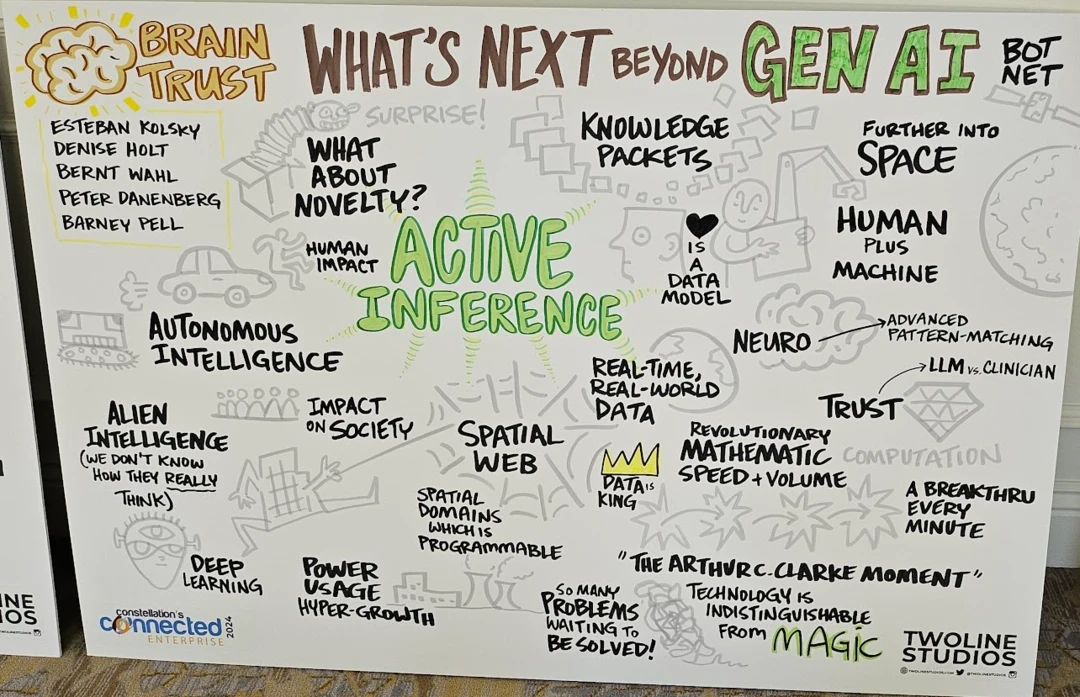 BRAIN
TRUST
WHAT'S NEXT BEYOND GEN AI
BOT
NET
ESTEBAN KOLSKY
DENISE HOLT
BERNT WAHL
PETER DANENBERG
BARNEY PELL
SURPRISE!
WHAT
ABOUT
NOVELTY?
KNOWLEDGE
PACKETS
FURTHER INTO
SPACE
HUMAN
IMPACT
ACTIVE
INFERENCE
IS
A
DATA
MODEL
HUMAN
PLUS
MACHINE
AUTONOMOUS
INTELLIGENCE
NEURO
ADVANCED
PATTERN-MATCHING
REAL-TIME,
REAL-WORLD
DATA
LLM VS. CLINICIAN
TRUST
ALIEN
INTELLIGENCE
(WE DON'T KNOW
HOW THEY REALLY
THINK)
IMPACT
ON SOCIETY
SPATIAL
WEB
SPATIAL
DOMAINS
WHICH IS
PROGRAMMABLE
DATA IS
KING
REVOLUTIONARY
MATHEMATIC
SPEED + VOLUME
COMPUTATION
A BREAKTHRU
EVERY
MINUTE
DEEP
LEARNING
POWER
USAGE
HYPER-GROWTH
SO MANY
PROBLEMS
WAITING TO
BE SOLVED!
"THE ARTHUR C. CLARKE MOMENT"
TECHNOLOGY IS
INDISTINGUISHABLE
FROM MAGIC
constellation's
connected
ENTERPRISE
2024
TWOLINE
STUDIOS